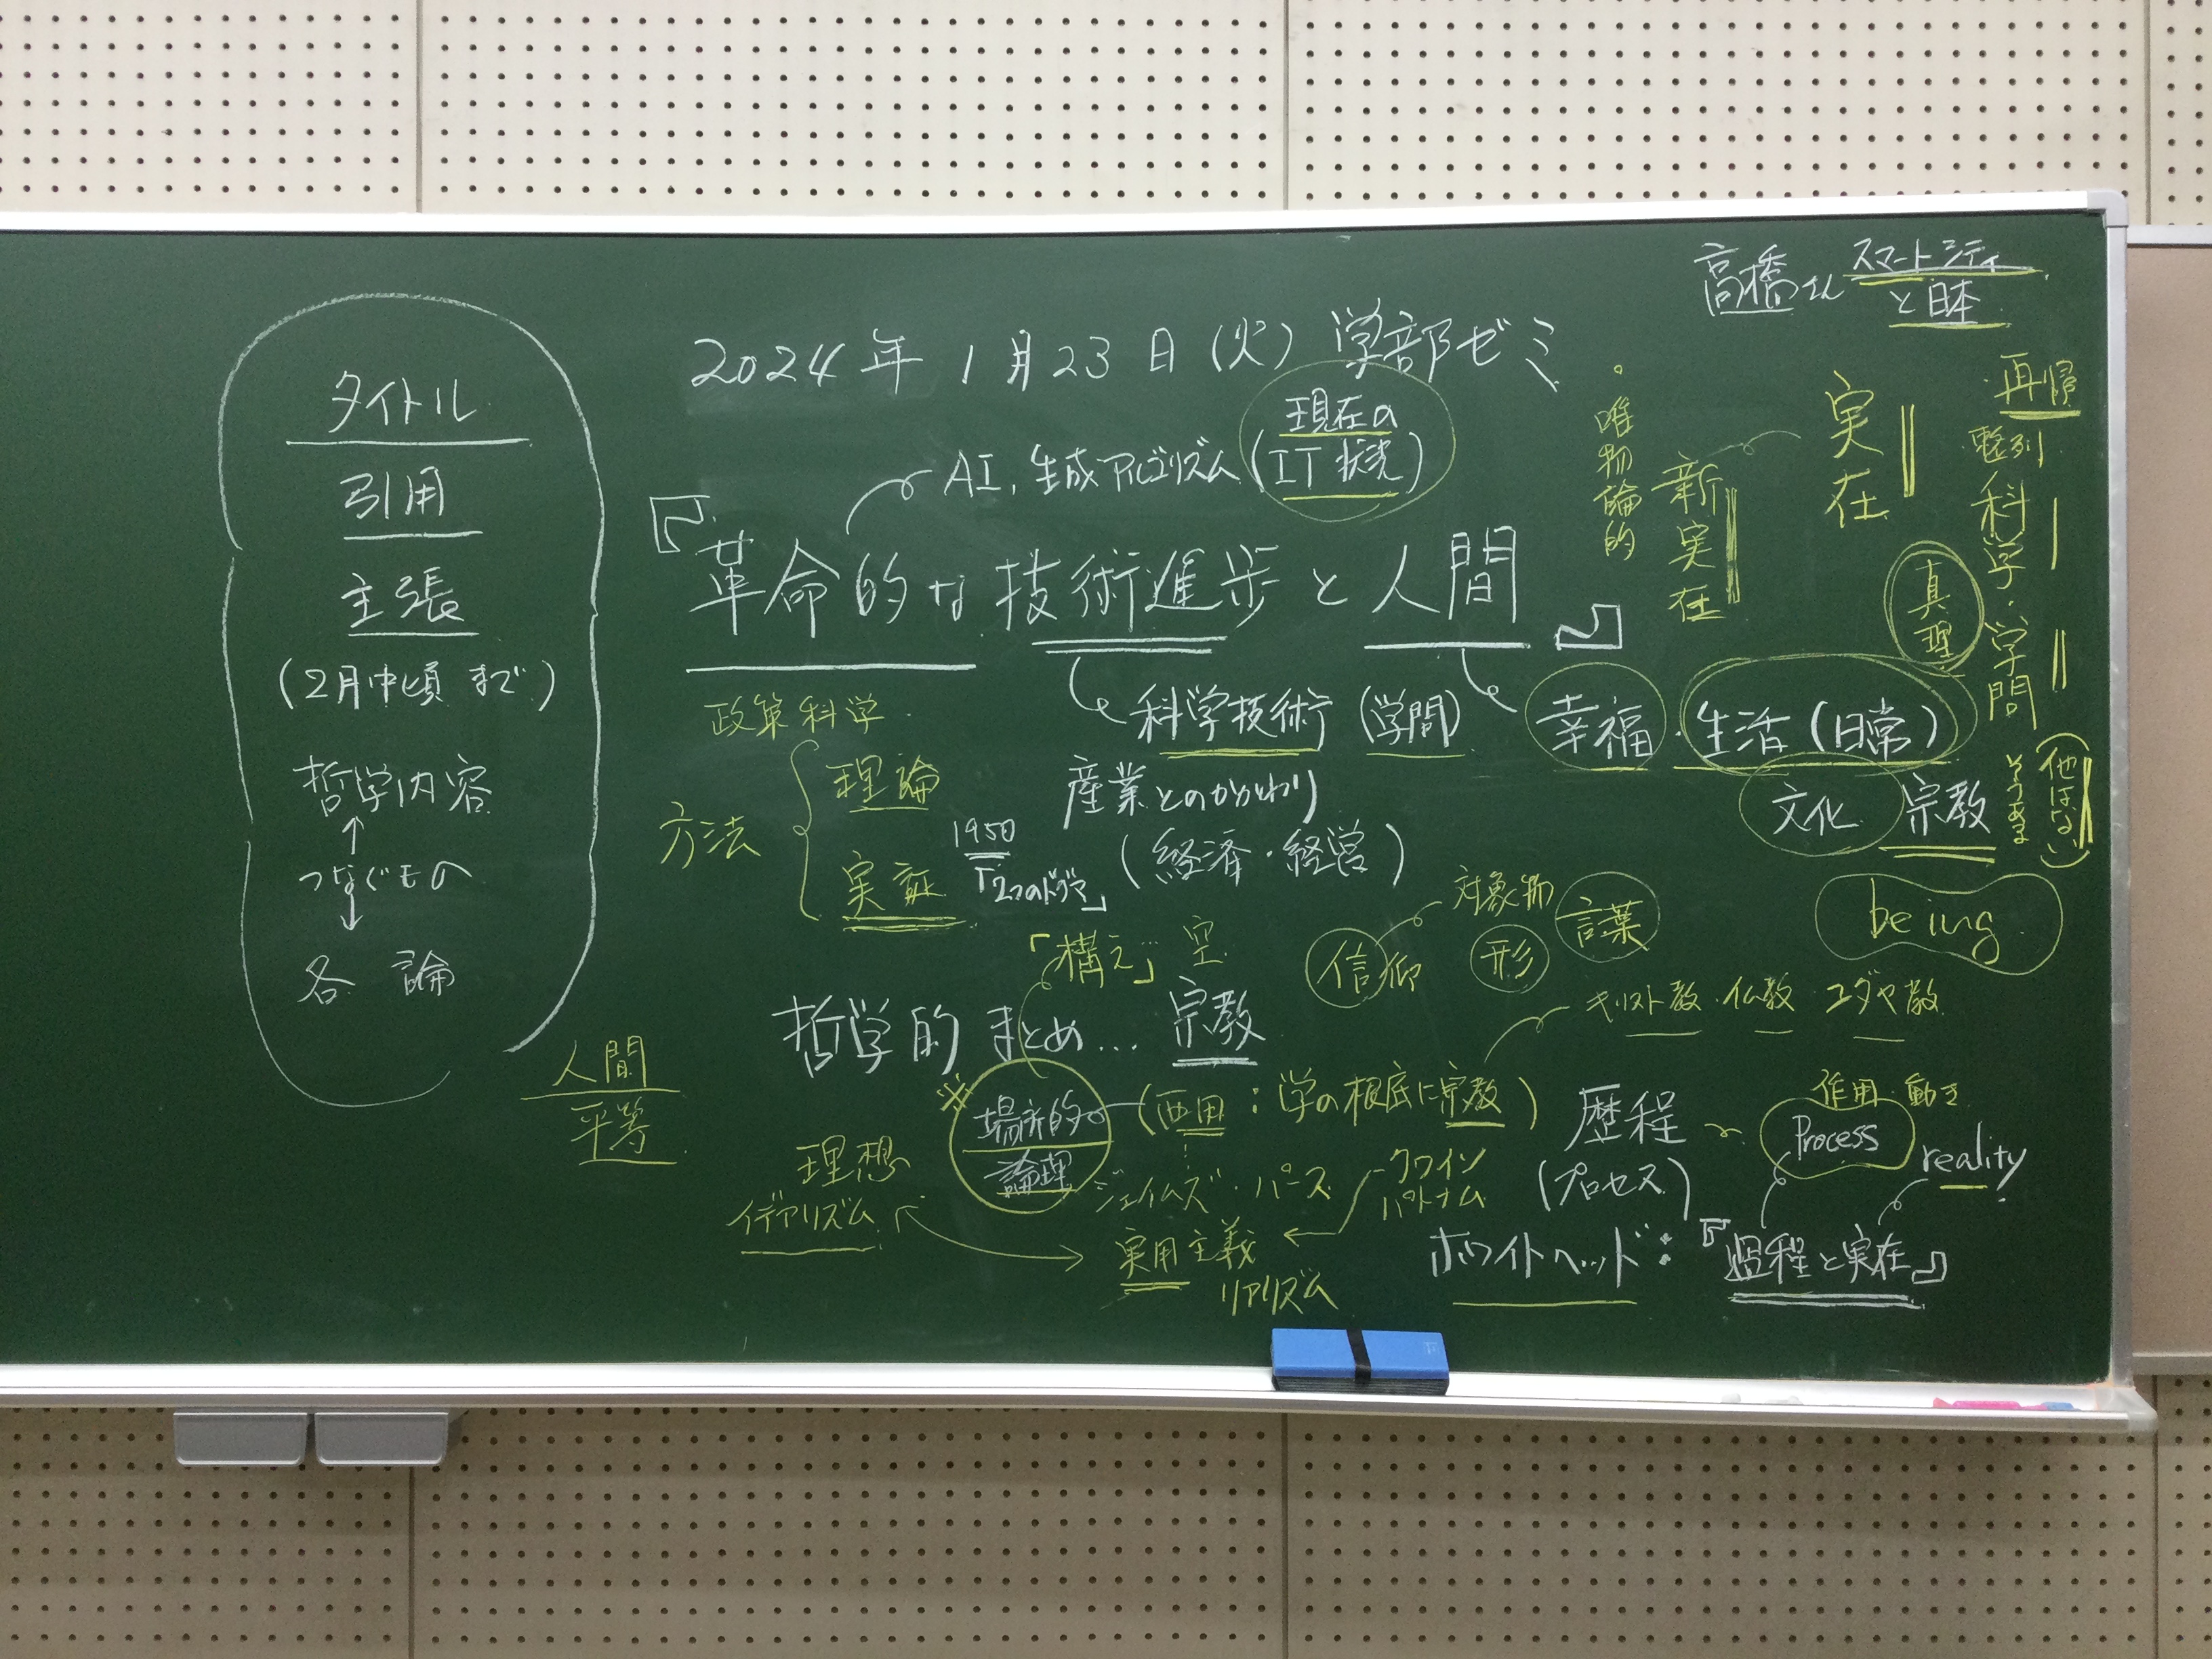 高橋さん スマートシティ
と日本
2024年1月23日(火) 学部ゼミ
タイトル
引用
主張
(2月中頃 まで)
哲学内容
つなぐもの
各 論
AI, 生成アルゴリズム (現在の
IT 状況)
『革命的な技術進歩と人間』
政策科学
科学技術 (学問)
幸福・生活(日常)
文化 宗教
産業とのかかわり
(経済・経営)
方法
理論
実証
1950
「2つのドグマ」
・唯物論的
新実在
実在
・再帰
整列
科学・学問
真理
(他はない)
そうある
being
対象物
言葉
信仰
形
「構え」 空
哲学的まとめ… 宗教
キリスト教・仏教・ユダヤ教
人間
平等
場所的
論理
(西田:学の根底に宗教)
ジェイムズ・パース
クワイン
パトナム
理想
イデアリズム
実用主義
リアリズム
歴程
(プロセス)
作用・動き
Process
reality
ホワイトヘッド:『過程と実在』